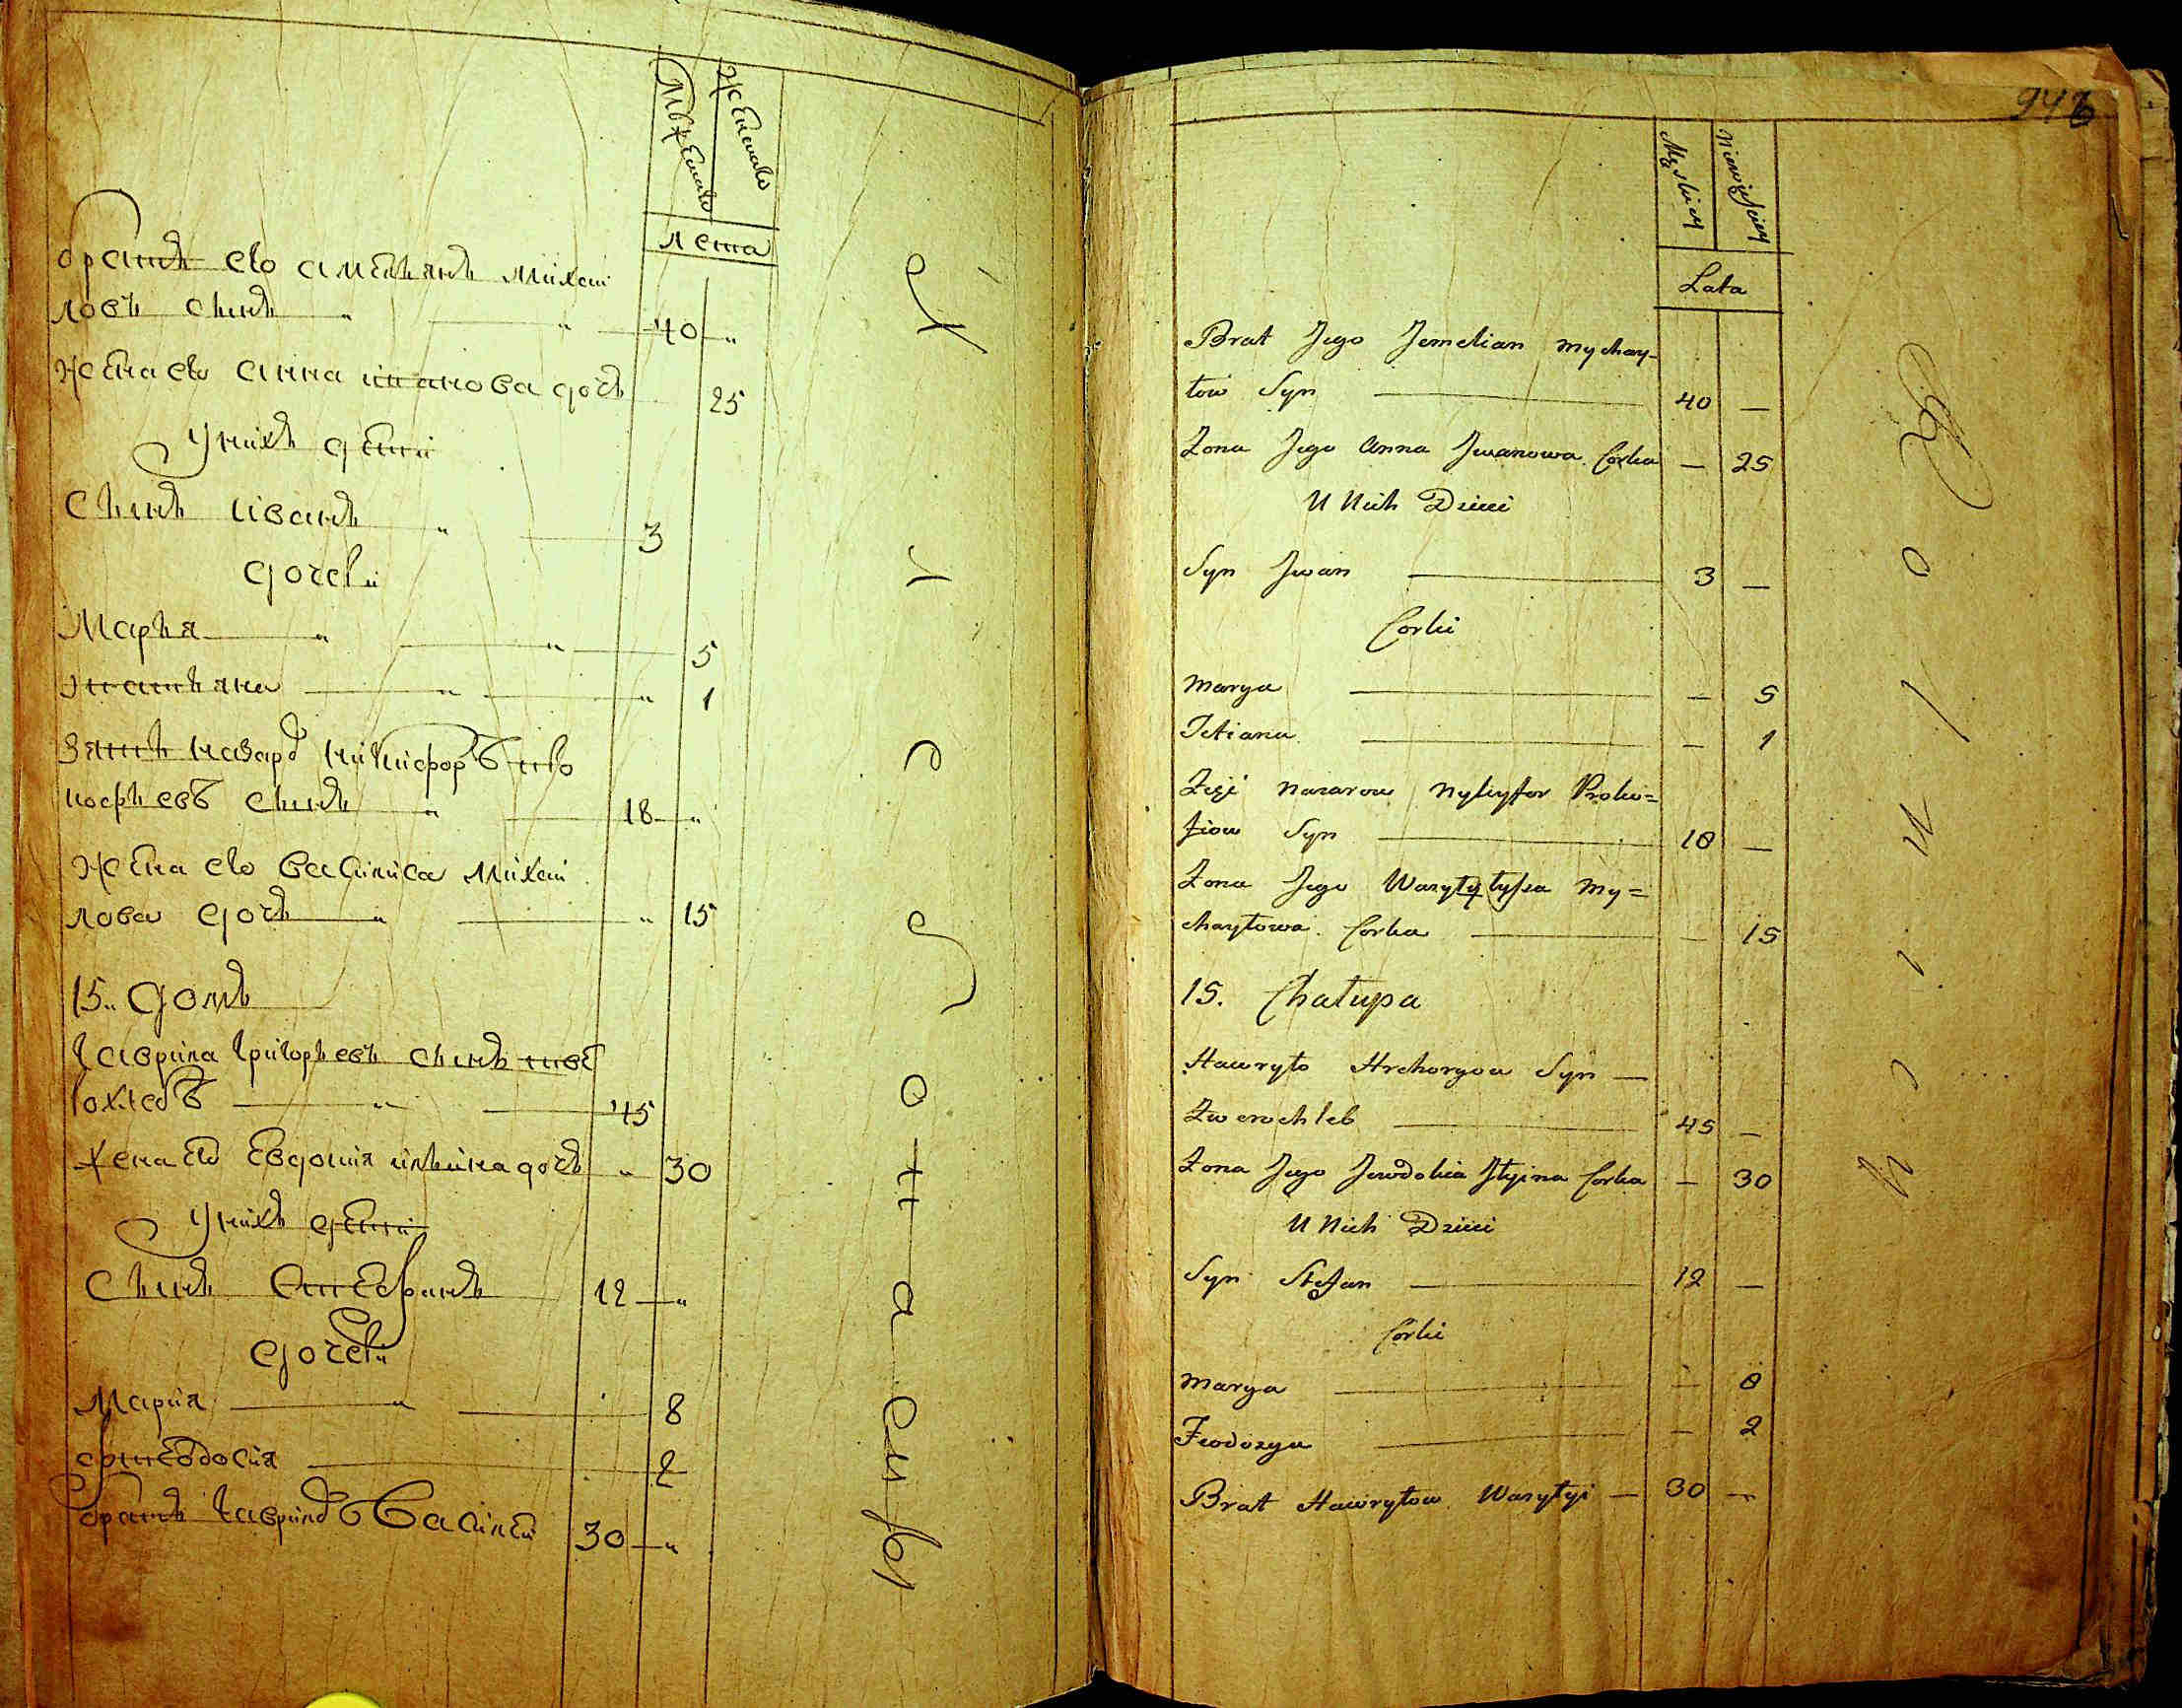 Мужеско
Женско
лета
братъ его амельянъ михай
ловъ сынъ " " 40 "
жена его анна иванова дочь 25
У нихъ дети
Сынъ иванъ " 3
дочери
Марья " " 5
татьяна " " 1
зять назаръ никифоръ
сынъ " 18 "
жена его василиса михай
лова дочь " " 15
15. домъ
гаврила григорьевъ сынъ тве
рохлебъ " 45
жена его евдокия ильина дочь " 30
У нихъ дети
Сынъ Стефанъ 12 "
дочери
Мария " 8
феодосия 2
братъ гаврилов Василей 30 "
946
Męskiey
Niewieściey
Lata
Brat Jego Jemelian Mychay-
łow Syn 40 —
Zona Jego Anna Jwanowa Corka — 25
U Nich Dzieci
Syn Jwan 3 —
Corki
Marya — 5
Tetiana — 1
Zięć Nazarow Nykyfor Proko=
fiow Syn 18 —
Zona Jego My=
chayłowa Corka — 15
15. Chałupa
Hawryło Hrehoryow Syn —
Zwerochleb 45 —
Zona Jego Jewdokia Jlyina Corka — 30
U Nich Dzieci
Syn Stefan 12 —
Corki
Marya — 8
Feodozya — 2
Brat Hawryłow Wasylyi — 30 —